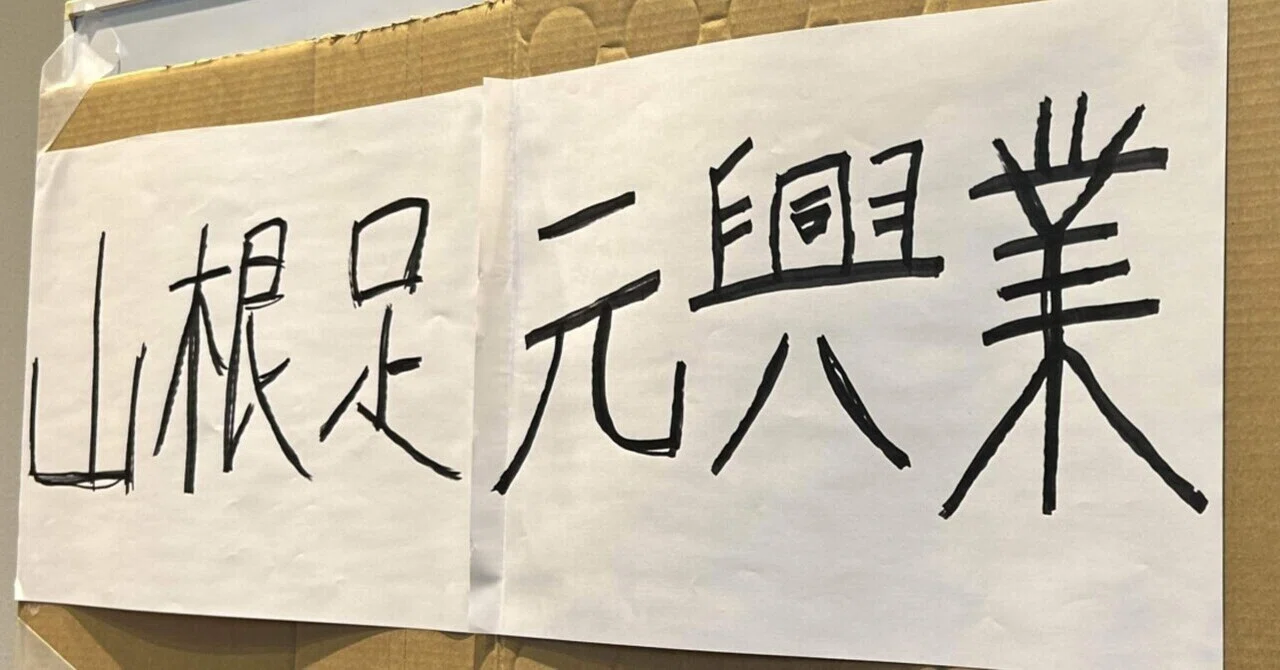 山根足元興業